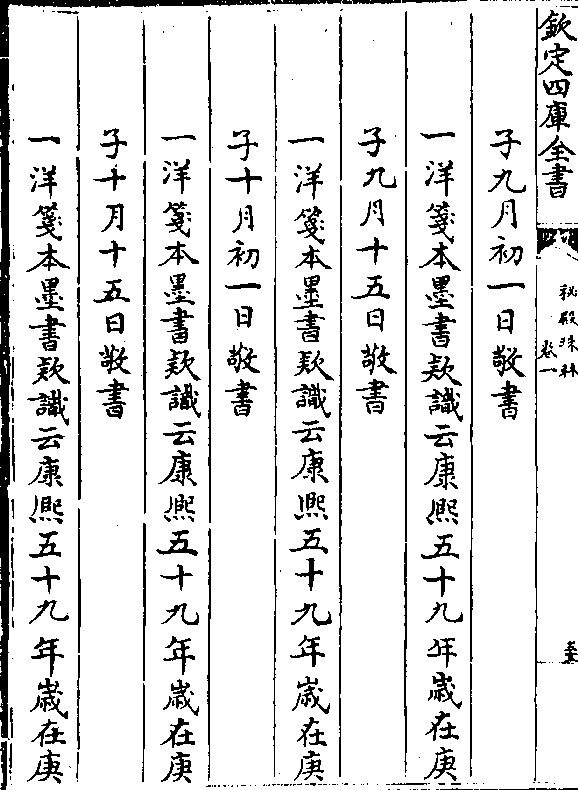 欽定四庫全書
秘殿珠林
卷一
子九月初一日敬書
一洋箋本墨書欵識云康熙五十九年歲在庚
子九月十五日敬書
一洋箋本墨書欵識云康熙五十九年歲在庚
子十月初一日敬書
一洋箋本墨書欵識云康熙五十九年歲在庚
子十月十五日敬書
一洋箋本墨書欵識云康熙五十九年歲在庚